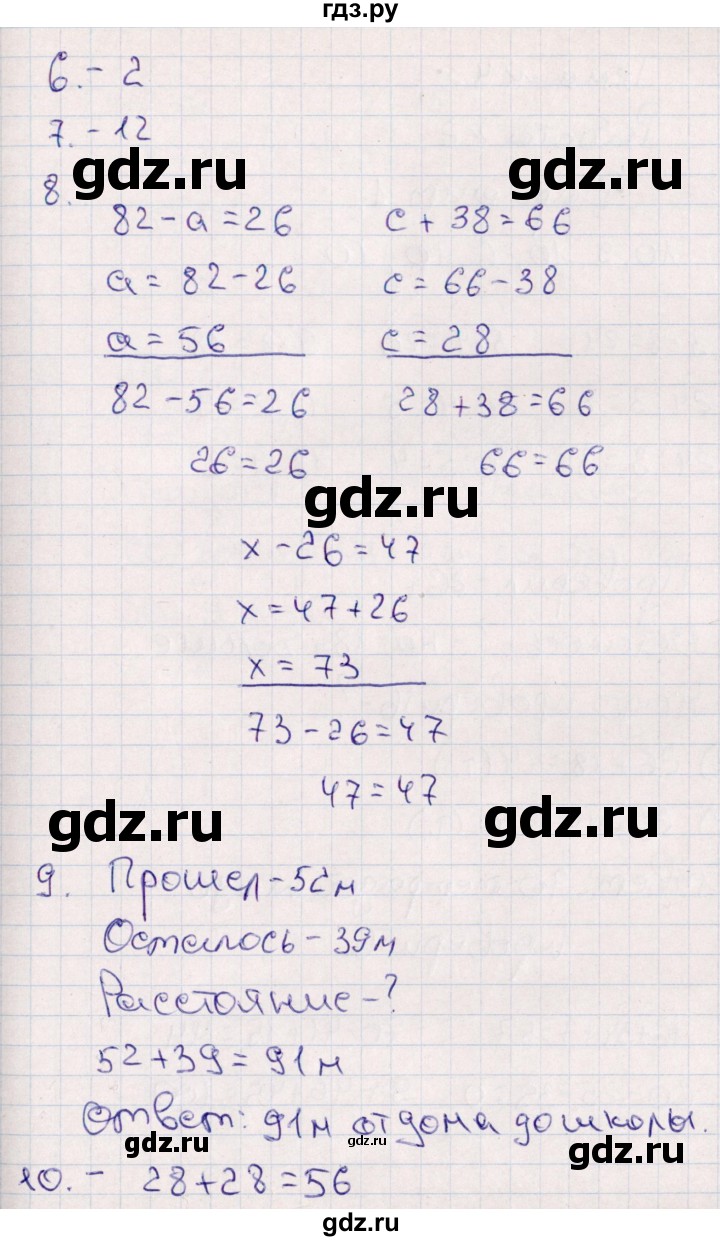 гдз.ру
6. - 2
7. - 12
gdz.ru
gdz.ru
8.
82 - a = 26
c + 38 = 66
a = 82 - 26
c = 66 - 38
a = 56
c = 28
82 - 56 = 26
28 + 38 = 66
26 = 26
66 = 66
gdz.ru
x - 26 = 47
x = 47 + 26
x = 73
73 - 26 = 47
47 = 47
gdz.ru
gdz.ru
9. Прошел - 52м
Осталось - 39м
Расстояние - ?
52 + 39 = 91м
Ответ: 91м от дома до школы.
gdz.ru
gdz.ru
gdz.ru
10. - 28 + 28 = 56
gdz.ru
gdz.ru